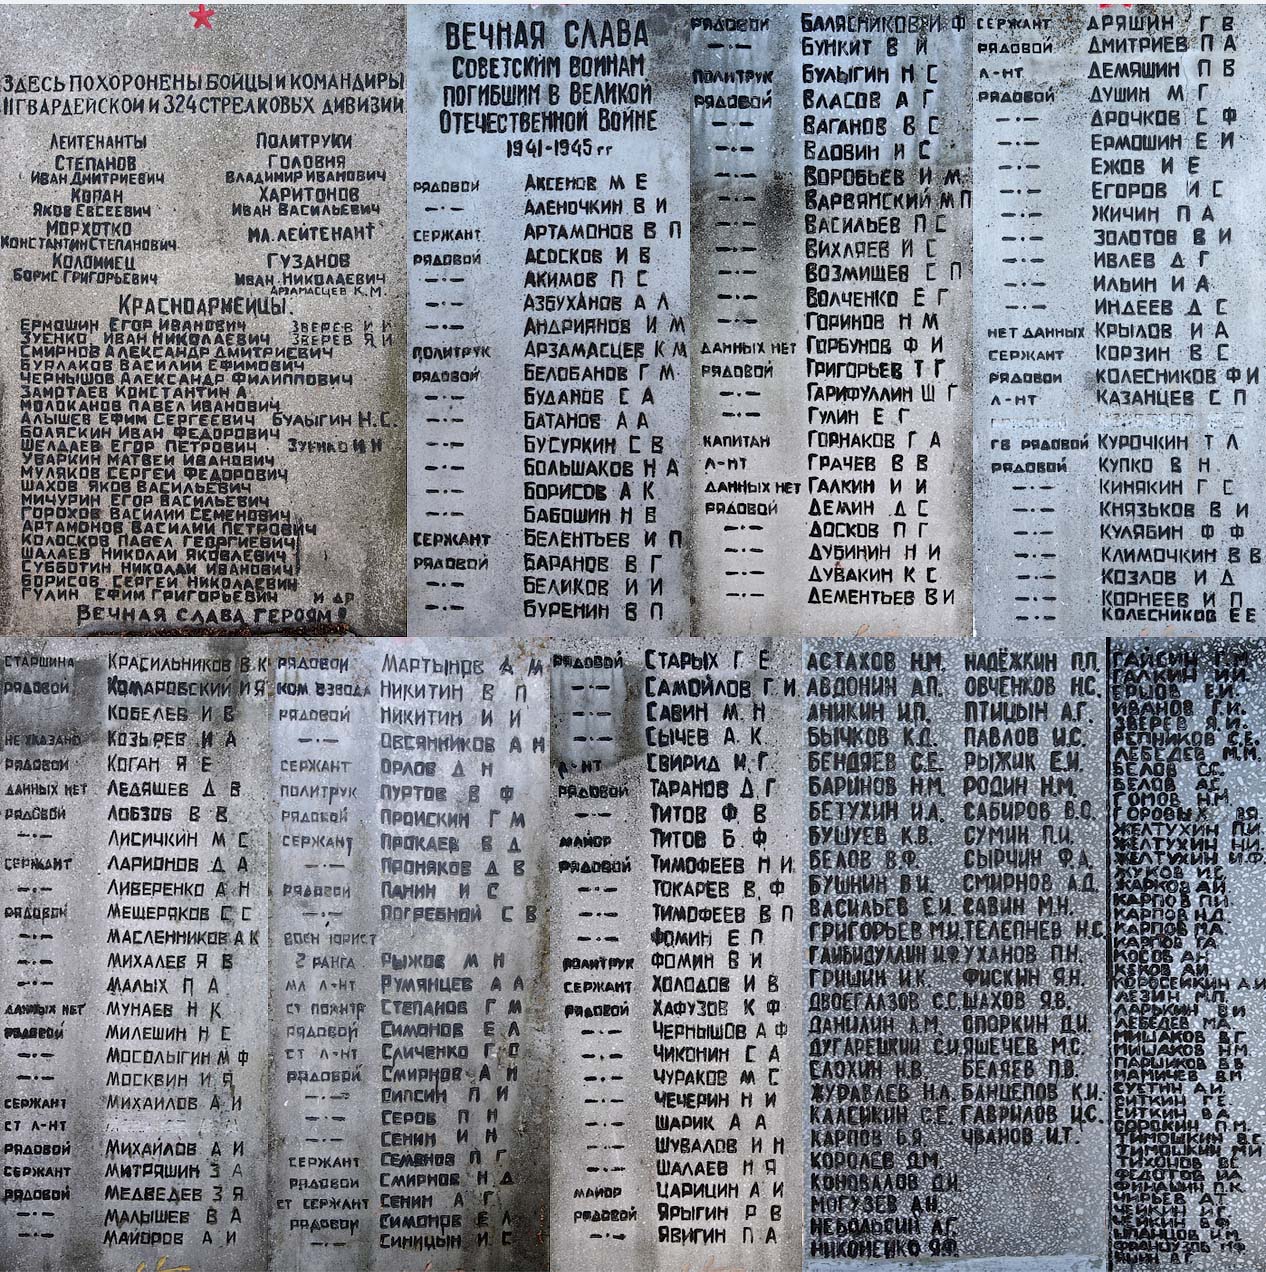 ЗДЕСЬ ПОХОРОНЕНЫ БОЙЦЫ И КОМАНДИРЫ
11 ГВАРДЕЙСКОЙ И 324 СТРЕЛКОВЫХ ДИВИЗИЙ
ЛЕЙТЕНАНТЫ
СТЕПАНОВ
ИВАН ДМИТРИЕВИЧ
КОГАН
ЯКОВ ЕВСЕЕВИЧ
МОРХОТКО
КОНСТАНТИН СТЕПАНОВИЧ
КОЛОМИЕЦ
БОРИС ГРИГОРЬЕВИЧ
ПОЛИТРУКИ
ГОЛОВНЯ
ВЛАДИМИР ИВАНОВИЧ
ХАРИТОНОВ
ИВАН ВАСИЛЬЕВИЧ
МЛ. ЛЕЙТЕНАНТ
ГУЗАНОВ
ИВАН НИКОЛАЕВИЧ
АРЗАМАСЦЕВ К.М.
КРАСНОАРМЕЙЦЫ.
ЕРМОШИН ЕГОР ИВАНОВИЧ ЗВЕРЕВ И И
ЗУЕНКО ИВАН НИКОЛАЕВИЧ ЗВЕРЕВ Я И
СМИРНОВ АЛЕКСАНДР ДМИТРИЕВИЧ
БУРЛАКОВ ВАСИЛИЙ ЕФИМОВИЧ
ЧЕРНЫШОВ АЛЕКСАНДР ФИЛИППОВИЧ
ЗАМОТАЕВ КОНСТАНТИН А
МОЛОКАНОВ ПАВЕЛ ИВАНОВИЧ
АЛЫШЕВ ЕФИМ СЕРГЕЕВИЧ БУЛЫГИН Н.С.
БОЛЯСКИН ИВАН ФЕДОРОВИЧ
ШЕЛДАЕВ ЕГОР ПЕТРОВИЧ ЗУЕНКО И Н
УВАРКИН МАТВЕЙ ИВАНОВИЧ
МУЛЯКОВ СЕРГЕЙ ФЕДОРОВИЧ
ШАХОВ ЯКОВ ВАСИЛЬЕВИЧ
МИЧУРИН ЕГОР ВАСИЛЬЕВИЧ
ГОРОХОВ ВАСИЛИЙ СЕМЕНОВИЧ
АРТАМОНОВ ВАСИЛИЙ ПЕТРОВИЧ
КОЛОСКОВ ПАВЕЛ ГЕОРГИЕВИЧ
ШАЛАЕВ НИКОЛАЙ ЯКОВЛЕВИЧ
СУББОТИН НИКОЛАЙ ИВАНОВИЧ
БОРИСОВ СЕРГЕЙ НИКОЛАЕВИЧ
ГУЛИН ЕФИМ ГРИГОРЬЕВИЧ И ДР
ВЕЧНАЯ СЛАВА ГЕРОЯМ!
ВЕЧНАЯ СЛАВА
СОВЕТСКИМ ВОИНАМ
ПОГИБШИМ В ВЕЛИКОЙ
ОТЕЧЕСТВЕННОЙ ВОЙНЕ
1941-1945 гг
РЯДОВОЙ АКСЕНОВ М Е
—·— АЛЕНОЧКИН В И
СЕРЖАНТ АРТАМОНОВ В П
РЯДОВОЙ АСОСКОВ И В
—·— АКИМОВ П С
—·— АЗБУХАНОВ А Л
—·— АНДРИЯНОВ И М
ПОЛИТРУК АРЗАМАСЦЕВ К М
РЯДОВОЙ БЕЛОБАНОВ Г М
—·— БУДАНОВ С А
—·— БАТАНОВ А А
—·— БУСУРКИН С В
—·— БОЛЬШАКОВ Н А
—·— БОРИСОВ А К
—·— БАБОШИН Н В
СЕРЖАНТ БЕЛЕНТЬЕВ И П
РЯДОВОЙ БАРАНОВ В Г
—·— БЕЛИКОВ И И
—·— БУРЕНИН В П
РЯДОВОЙ БАЛЯСНИКОВ И Ф
—·— БУНКИТ В И
ПОЛИТРУК БУЛЫГИН Н С
РЯДОВОЙ ВЛАСОВ А Г
—·— ВАГАНОВ В С
—·— ВДОВИН И С
—·— ВОРОБЬЕВ И М
—·— ВАРВЯНСКИЙ М П
—·— ВАСИЛЬЕВ П С
—·— ВИХЛЯЕВ И С
—·— ВОЗМИЩЕВ С П
—·— ВОЛЧЕНКО Е Г
—·— ГОРИНОВ Н М
ДАННЫХ НЕТ ГОРБУНОВ Ф И
РЯДОВОЙ ГРИГОРЬЕВ Т Г
—·— ГАРИФУЛЛИН Ш Г
—·— ГУЛИН Е Г
КАПИТАН ГОРНАКОВ Г А
Л-НТ ГРАЧЕВ В В
ДАННЫХ НЕТ ГАЛКИН И И
РЯДОВОЙ ДЕМИН Д С
—·— ДОСКОВ П Г
—·— ДУБИНИН Н И
—·— ДУВАКИН К С
—·— ДЕМЕНТЬЕВ В И
СЕРЖАНТ ДРЯШИН Г В
РЯДОВОЙ ДМИТРИЕВ П А
Л-НТ ДЕМЯШИН П В
РЯДОВОЙ ДУШИН М Г
—·— ДРОЧКОВ С Ф
—·— ЕРМОШИН Е И
—·— ЕЖОВ И Е
—·— ЕГОРОВ И С
—·— ЖИЧИН П А
—·— ЗОЛОТОВ В И
—·— ИВЛЕВ Д Г
—·— ИЛЬИН И А
—·— ИНДЕЕВ Д С
НЕТ ДАННЫХ КРЫЛОВ И А
СЕРЖАНТ КОРЗИН В С
РЯДОВОЙ КОЛЕСНИКОВ Ф И
Л-НТ КАЗАНЦЕВ С П
ГВ РЯДОВОЙ КУРОЧКИН Т Л
РЯДОВОЙ КУПКО В Н
—·— КИНЯКИН Г С
—·— КНЯЗЬКОВ В И
—·— КУЛЯБИН Ф Ф
—·— КЛИМОЧКИН В В
—·— КОЗЛОВ И Д
—·— КОРНЕЕВ И П
КОЛЕСНИКОВ Е Е
СТАРШИНА КРАСИЛЬНИКОВ В К
РЯДОВОЙ КОМАРОВСКИЙ И Я
КОБЕЛЕВ И В
НЕ УКАЗАНО КОЗЫРЕВ И А
РЯДОВОЙ КОГАН Я Е
ДАННЫХ НЕТ ЛЕДЯШЕВ Д В
РЯДОВОЙ ЛОБЗОВ В В
—·— ЛИСИЧКИН М С
СЕРЖАНТ ЛАРИОНОВ Д А
—·— ЛИВЕРЕНКО А Н
РЯДОВОЙ МЕЩЕРЯКОВ С С
—·— МАСЛЕННИКОВ А К
—·— МИХАЛЕВ Я В
—·— МАЛЫХ П А
ДАННЫХ НЕТ МУНАЕВ Н К
РЯДОВОЙ МИЛЕШИН Н С
—·— МОСОЛЫГИН М Ф
—·— МОСКВИН И Я
СЕРЖАНТ МИХАЙЛОВ А И
СТ Л-НТ
РЯДОВОЙ МИХАЙЛОВ А И
СЕРЖАНТ МИТРЯШИН З А
РЯДОВОЙ МЕДВЕДЕВ З Я
—·— МАЛЫШЕВ В А
—·— МАЙОРОВ А И
РЯДОВОЙ МАРТЫНОВ А М
КОМ ВЗВОДА НИКИТИН В П
РЯДОВОЙ НИКИТИН И И
—·— ОВСЯННИКОВ А Н
СЕРЖАНТ ОРЛОВ Д Н
ПОЛИТРУК ПУРТОВ В Ф
РЯДОВОЙ ПРОИСКИН Г М
СЕРЖАНТ ПРОКАЕВ В Д
—·— ПРОНЯКОВ Д В
РЯДОВОЙ ПАНИН И С
—·— ПОГРЕБНОЙ С В
ВОЕН ЮРИСТ
2 РАНГА РЫЖОВ М Н
МЛ Л-НТ РУМЯНЦЕВ А А
СТЕПАНОВ Г М
РЯДОВОЙ СИМОНОВ Е Л
СТ Л-НТ СЛИЧЕНКО Г С
РЯДОВОЙ СМИРНОВ А Н
—·— СИПСИН П И
—·— СЕРОВ П Н
—·— СЕНИН И Н
СЕРЖАНТ СЕМЕНОВ П Г
РЯДОВОЙ СМИРНОВ Н Д
СТ СЕРЖАНТ СЕНИН А Г
РЯДОВОЙ СИМОНОВ Е Л
—·— СИНИЦЫН И С
РЯДОВОЙ СТАРЫХ Г Е
—·— САМОЙЛОВ Г И
—·— САВИН М Н
—·— СЫЧЕВ А К
Л-НТ СВИРИД И Г
РЯДОВОЙ ТАРАНОВ Д Г
—·— ТИТОВ Ф В
МАЙОР ТИТОВ Б Ф
РЯДОВОЙ ТИМОФЕЕВ Н И
—·— ТОКАРЕВ В Ф
—·— ТИМОФЕЕВ В П
—·— ФОМИН Е П
ПОЛИТРУК ФОМИН В И
СЕРЖАНТ ХОЛОДОВ И В
РЯДОВОЙ ХАФУЗОВ К Ф
—·— ЧЕРНЫШОВ А Ф
—·— ЧИКОНИН С А
—·— ЧУРАКОВ М С
—·— ЧЕЧЕРИН Н И
—·— ШАРИК А А
—·— ШУВАЛОВ И Н
—·— ШАЛАЕВ Н Я
МАЙОР ЦАРИЦИН А И
РЯДОВОЙ ЯРЫГИН Р В
—·— ЯВИГИН П А
АСТАХОВ Н.М. НАДЁЖКИН П.П.
АВДОНИН А.П. ОВЧЕНКОВ Н.С.
АНИКИН И.П. ПТИЦЫН А.Г.
БЫЧКОВ К.Д. ПАВЛОВ И.С.
БЕНДЯЕВ С.Е. РЫЖИК Е.И.
БАРИНОВ Н.М. РОДИН Н.М.
БЕТУХИН И.А. САБИРОВ В.О.
БУШУЕВ К.В. СУМИН П.И.
БЕЛОВ В.Ф. СЫРЧИН Ф.А.
БУШНИН В.И. СМИРНОВ А.Д.
ВАСИЛЬЕВ Е.И. САВИН М.Н.
ГРИГОРЬЕВ М.И. ТЕЛЕПНЕВ Н.С.
ГАЙБИДУЛЛИН И.Ф. УХАНОВ П.Н.
ГРИШИН И.К. ФИСКИН Я.Н.
ДВОЕГЛАЗОВ С.С. ШАХОВ Я.В.
ДАНИЛИН А.М. ОПОРКИН Д.И.
ДУГАРЕЦКИЙ С.И. ЯШЕЧЕВ М.С.
ЕЛОХИН Н.В. БЕЛЯЕВ П.В.
ЖУРАВЛЕВ Н.А. БАНЦЕПОВ К.И.
КАЛСИКИН С.Е. ГАВРИЛОВ И.С.
КАРПОВ Б.Я. ЧВАНОВ И.Т.
КОРОЛЕВ Д.М.
КОНОВАЛОВ Д.И.
МОГУЗЕВ А.Н.
НЕБОЛЬСИН А.Г.
НИКОНЕНКО Я.Ф.
ГАЙСИН Г.М.
ГАЛКИН И.И.
ЕРШОВ Е.И.
ИВАНОВ Г.И.
ЗВЕРЕВ Я.И.
РЕПНИКОВ С.Е.
ЛЕБЕДЕВ М.М.
БЕЛОВ С.С.
БЕЛОВ А.С.
ГОМОВ Н.М.
ГОРОВЫХ В.Я.
ЖЕЛТУХИН П.И.
ЖЕЛТУХИН Н.И.
ЖЕЛТУХИН И.Ф.
ЖУКОВ И.С.
ЖАРКОВ А.И.
КАРПОВ П.И.
КАРПОВ Н.Д.
КАРПОВ М.А.
КАРПОВ Г.А.
КОСОВ А.Н.
КЕКОВ А.И.
КОРОСЕЙКИН А.И
ЛЕЗИН М.П.
ЛАРЬКИН В.И
ЛЕБЕДЕВ М.А.
МИШАКОВ В.Г.
МИШАКОВ Н.М.
ПАРШИКОВ В.В.
МАМИЧЕВ В.М.
СУЕТИН А.И.
СИТКИН Г.Е.
СИТКИН В.А.
СОРОКИН П.М.
ТИМОШКИН В.С.
ТИМОШКИН М.И
ТИХОНОВ В.С.
ФЕДОТОВ И.А.
ФИНАШИН П.К.
ЧИРЬЕВ А.Т.
ЧЕЙКИН И.Г.
ЧЕЙКИН В.Ф.
ШПАНЦОВ И.М.
ФРАНЦУЗОВ М.Ф.